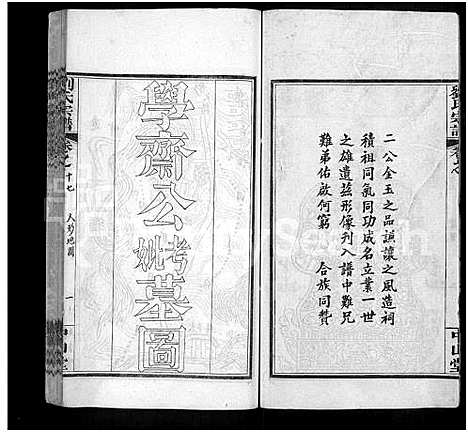 劉氏宗譜
卷之
二公金玉之品謙讓之風造祠
積祖同氣同功成名立業一世
之雄遺茲形像列入譜中難兄
難弟佑啟何窮
合族同贊
中山堂
學齋公考妣墓圖
劉氏宗譜
卷之十七
人珍地圖
一
中山堂